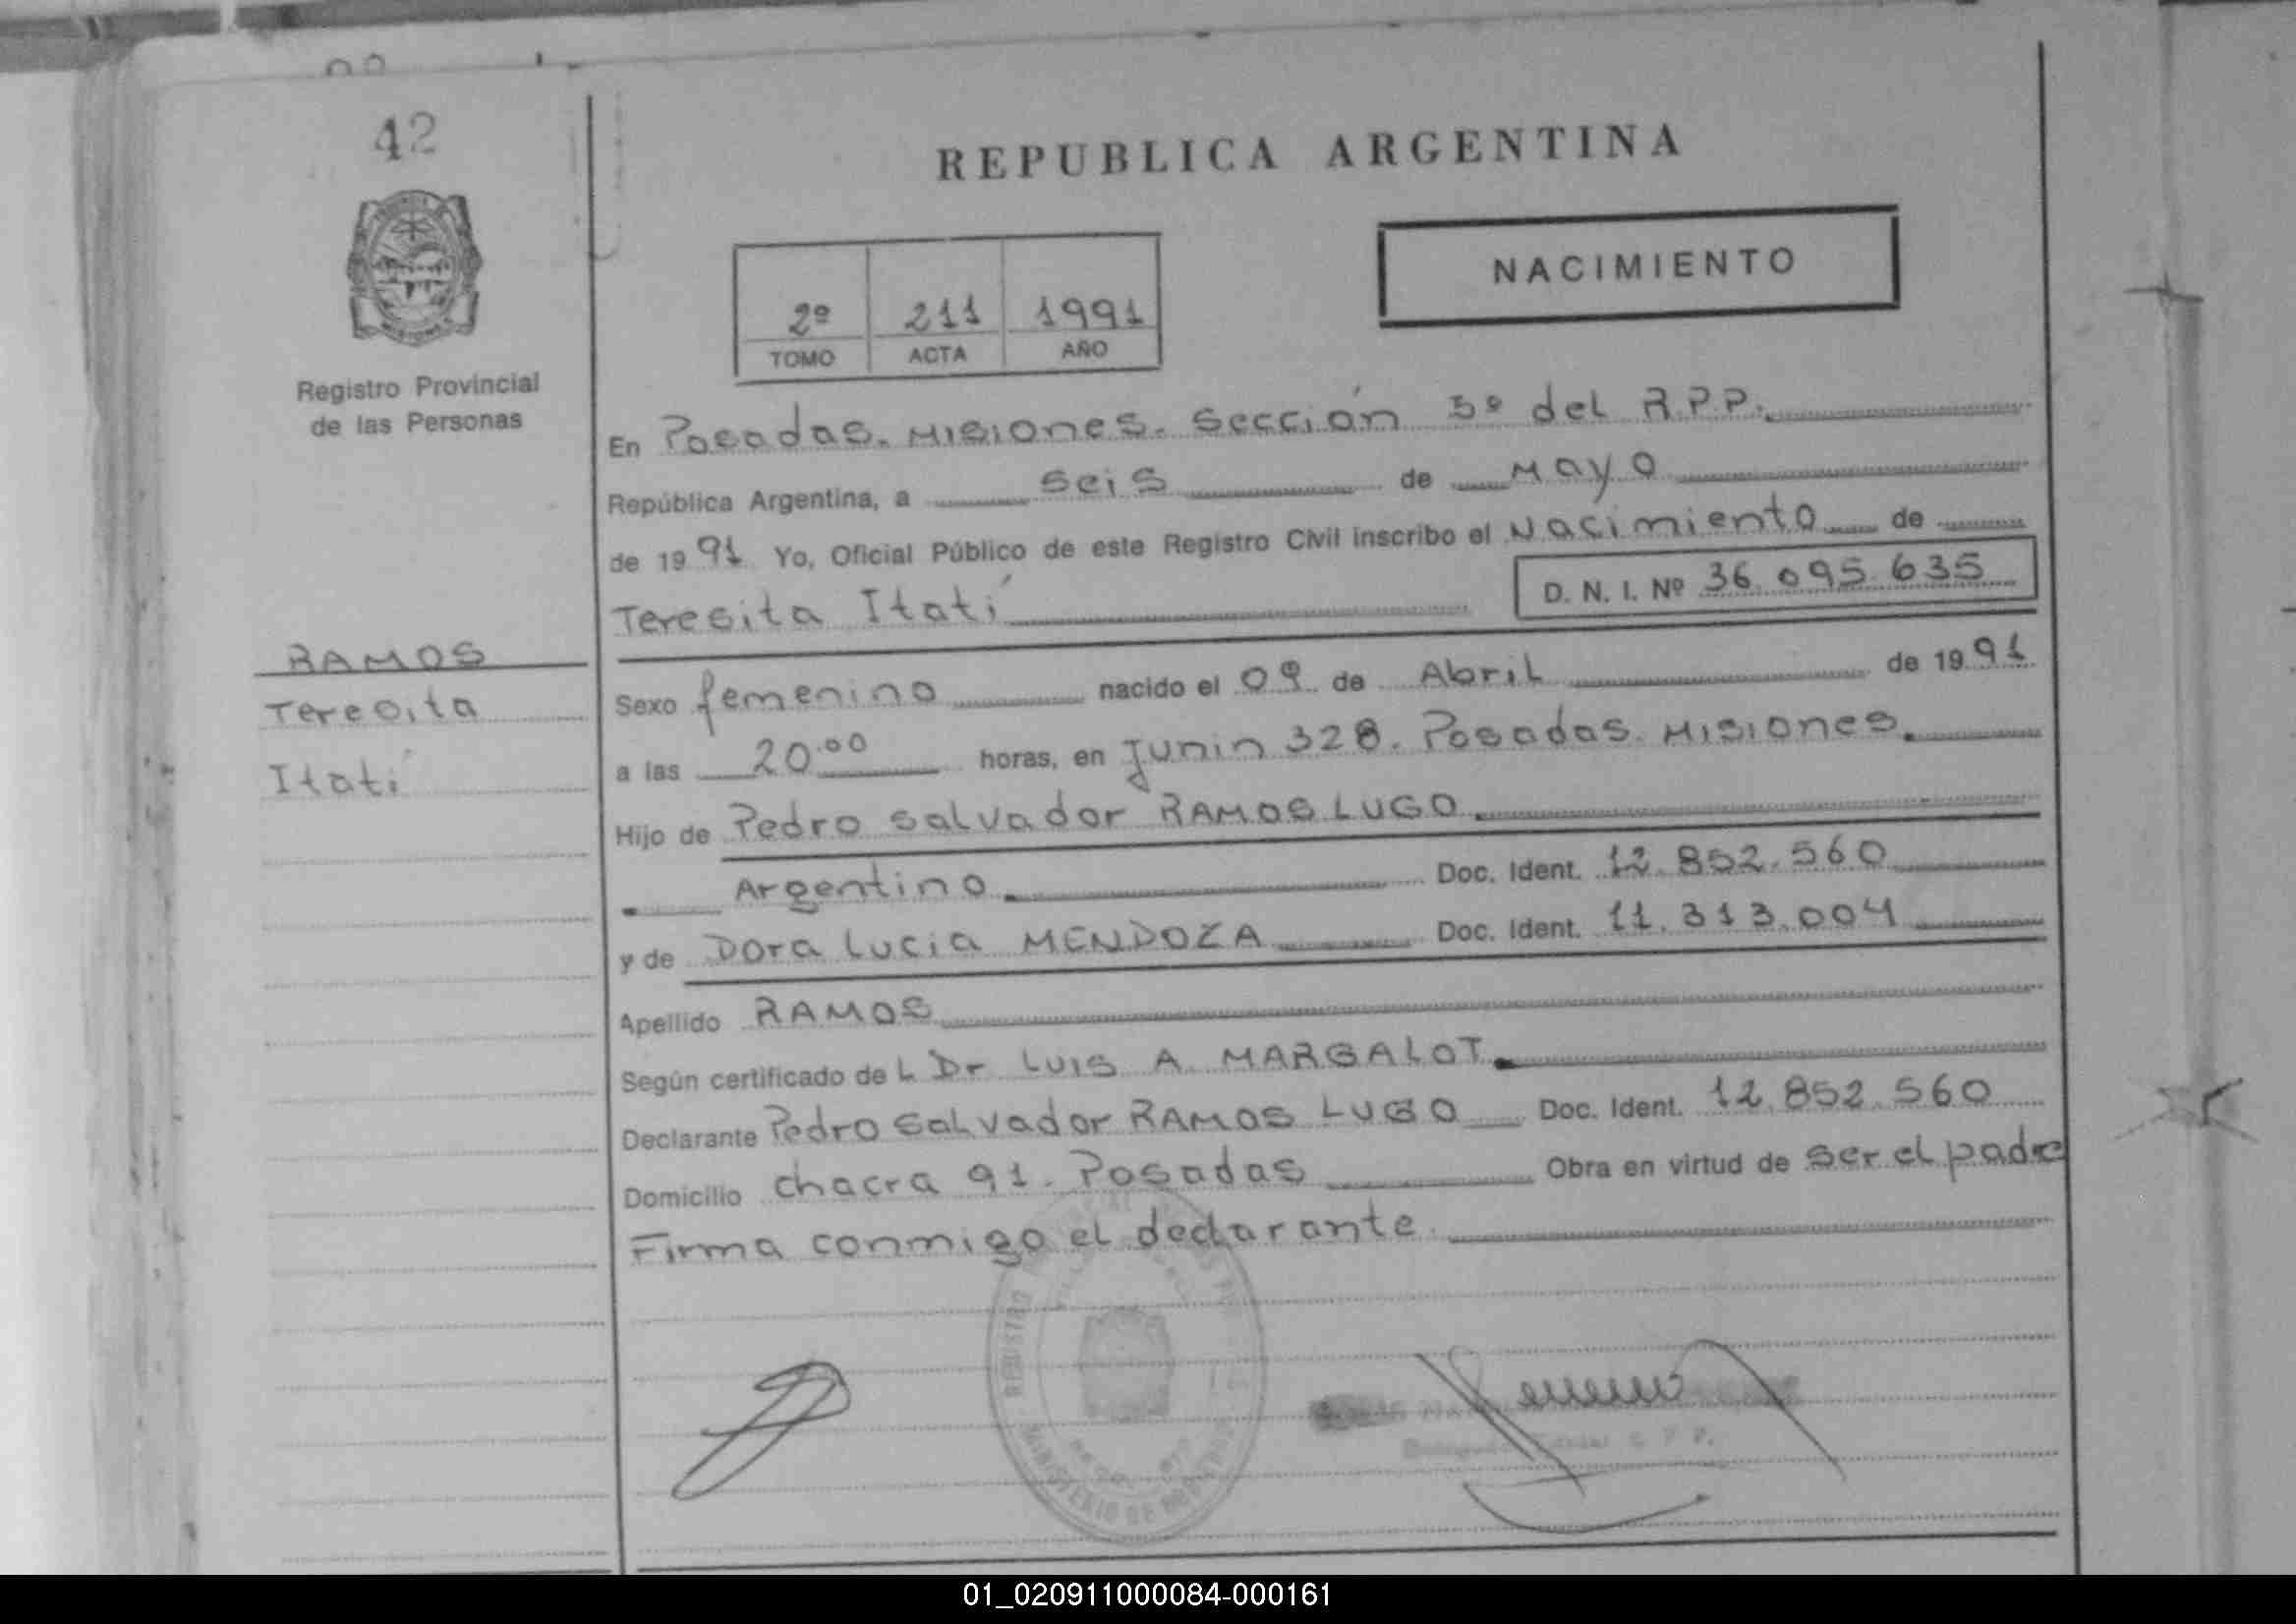 42
REPUBLICA ARGENTINA
NACIMIENTO
2º 211 1991
TOMO ACTA AÑO
Registro Provincial
de las Personas
En Posadas. Misiones. Sección 3º del R.P.P.
República Argentina, a seis de Mayo
de 1991 Yo, Oficial Público de este Registro Civil inscribo el Nacimiento de
Teresita Itatí D. N. I. Nº 36.095.635
RAMOS
Teresita
Itatí
Sexo femenino nacido el 09 de Abril de 1991
a las 20.00 horas, en Junin 328. Posadas. Misiones.
Hijo de Pedro Salvador RAMOS LUGO
Argentino Doc. Ident. 12.852.560
y de Dora Lucia MENDOZA Doc. Ident. 11.313.004
Apellido RAMOS
Según certificado del Dr Luis A. MARGALOT
Declarante Pedro Salvador RAMOS LUGO Doc. Ident. 12.852.560
Domicilio chacra 91. Posadas Obra en virtud de ser el padre
Firma conmigo el declarante
REGISTRO
MINISTERIO DE
01_020911000084-000161